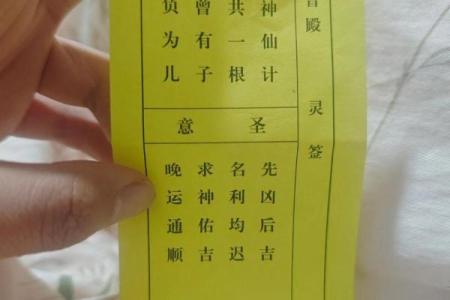 殿灵签
神仙计
共一根
曾有子
负为儿
圣意
先凶后吉
名利均迟
求神佑吉
晚运通顺